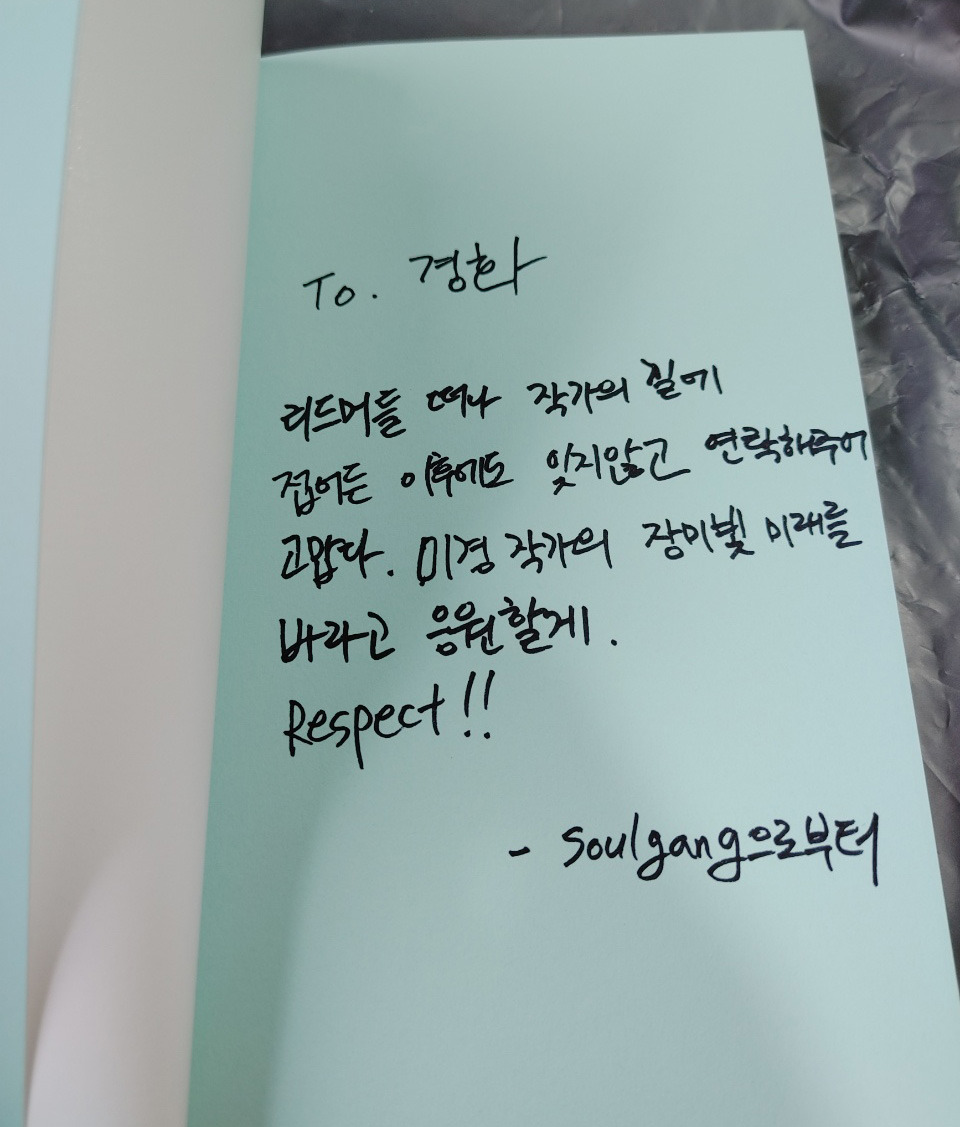 To. 경화
리드머를 떠나 작가의 길에
접어든 이후에도 잊지않고 연락해주어
고맙다. 미경 작가의 장미빛 미래를
바라고 응원할게.
Respect!!
- Soulgang으로부터